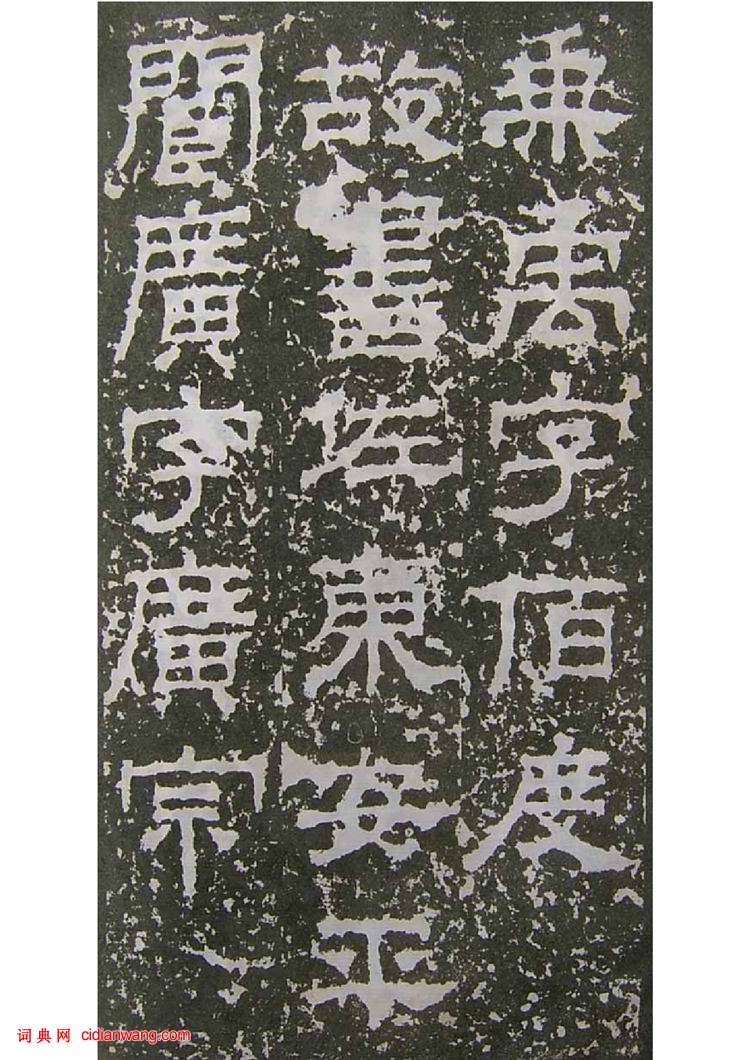 乘禹字佰度
故書佐東安平
閻廣字廣宗
词典网 cidianwang.com